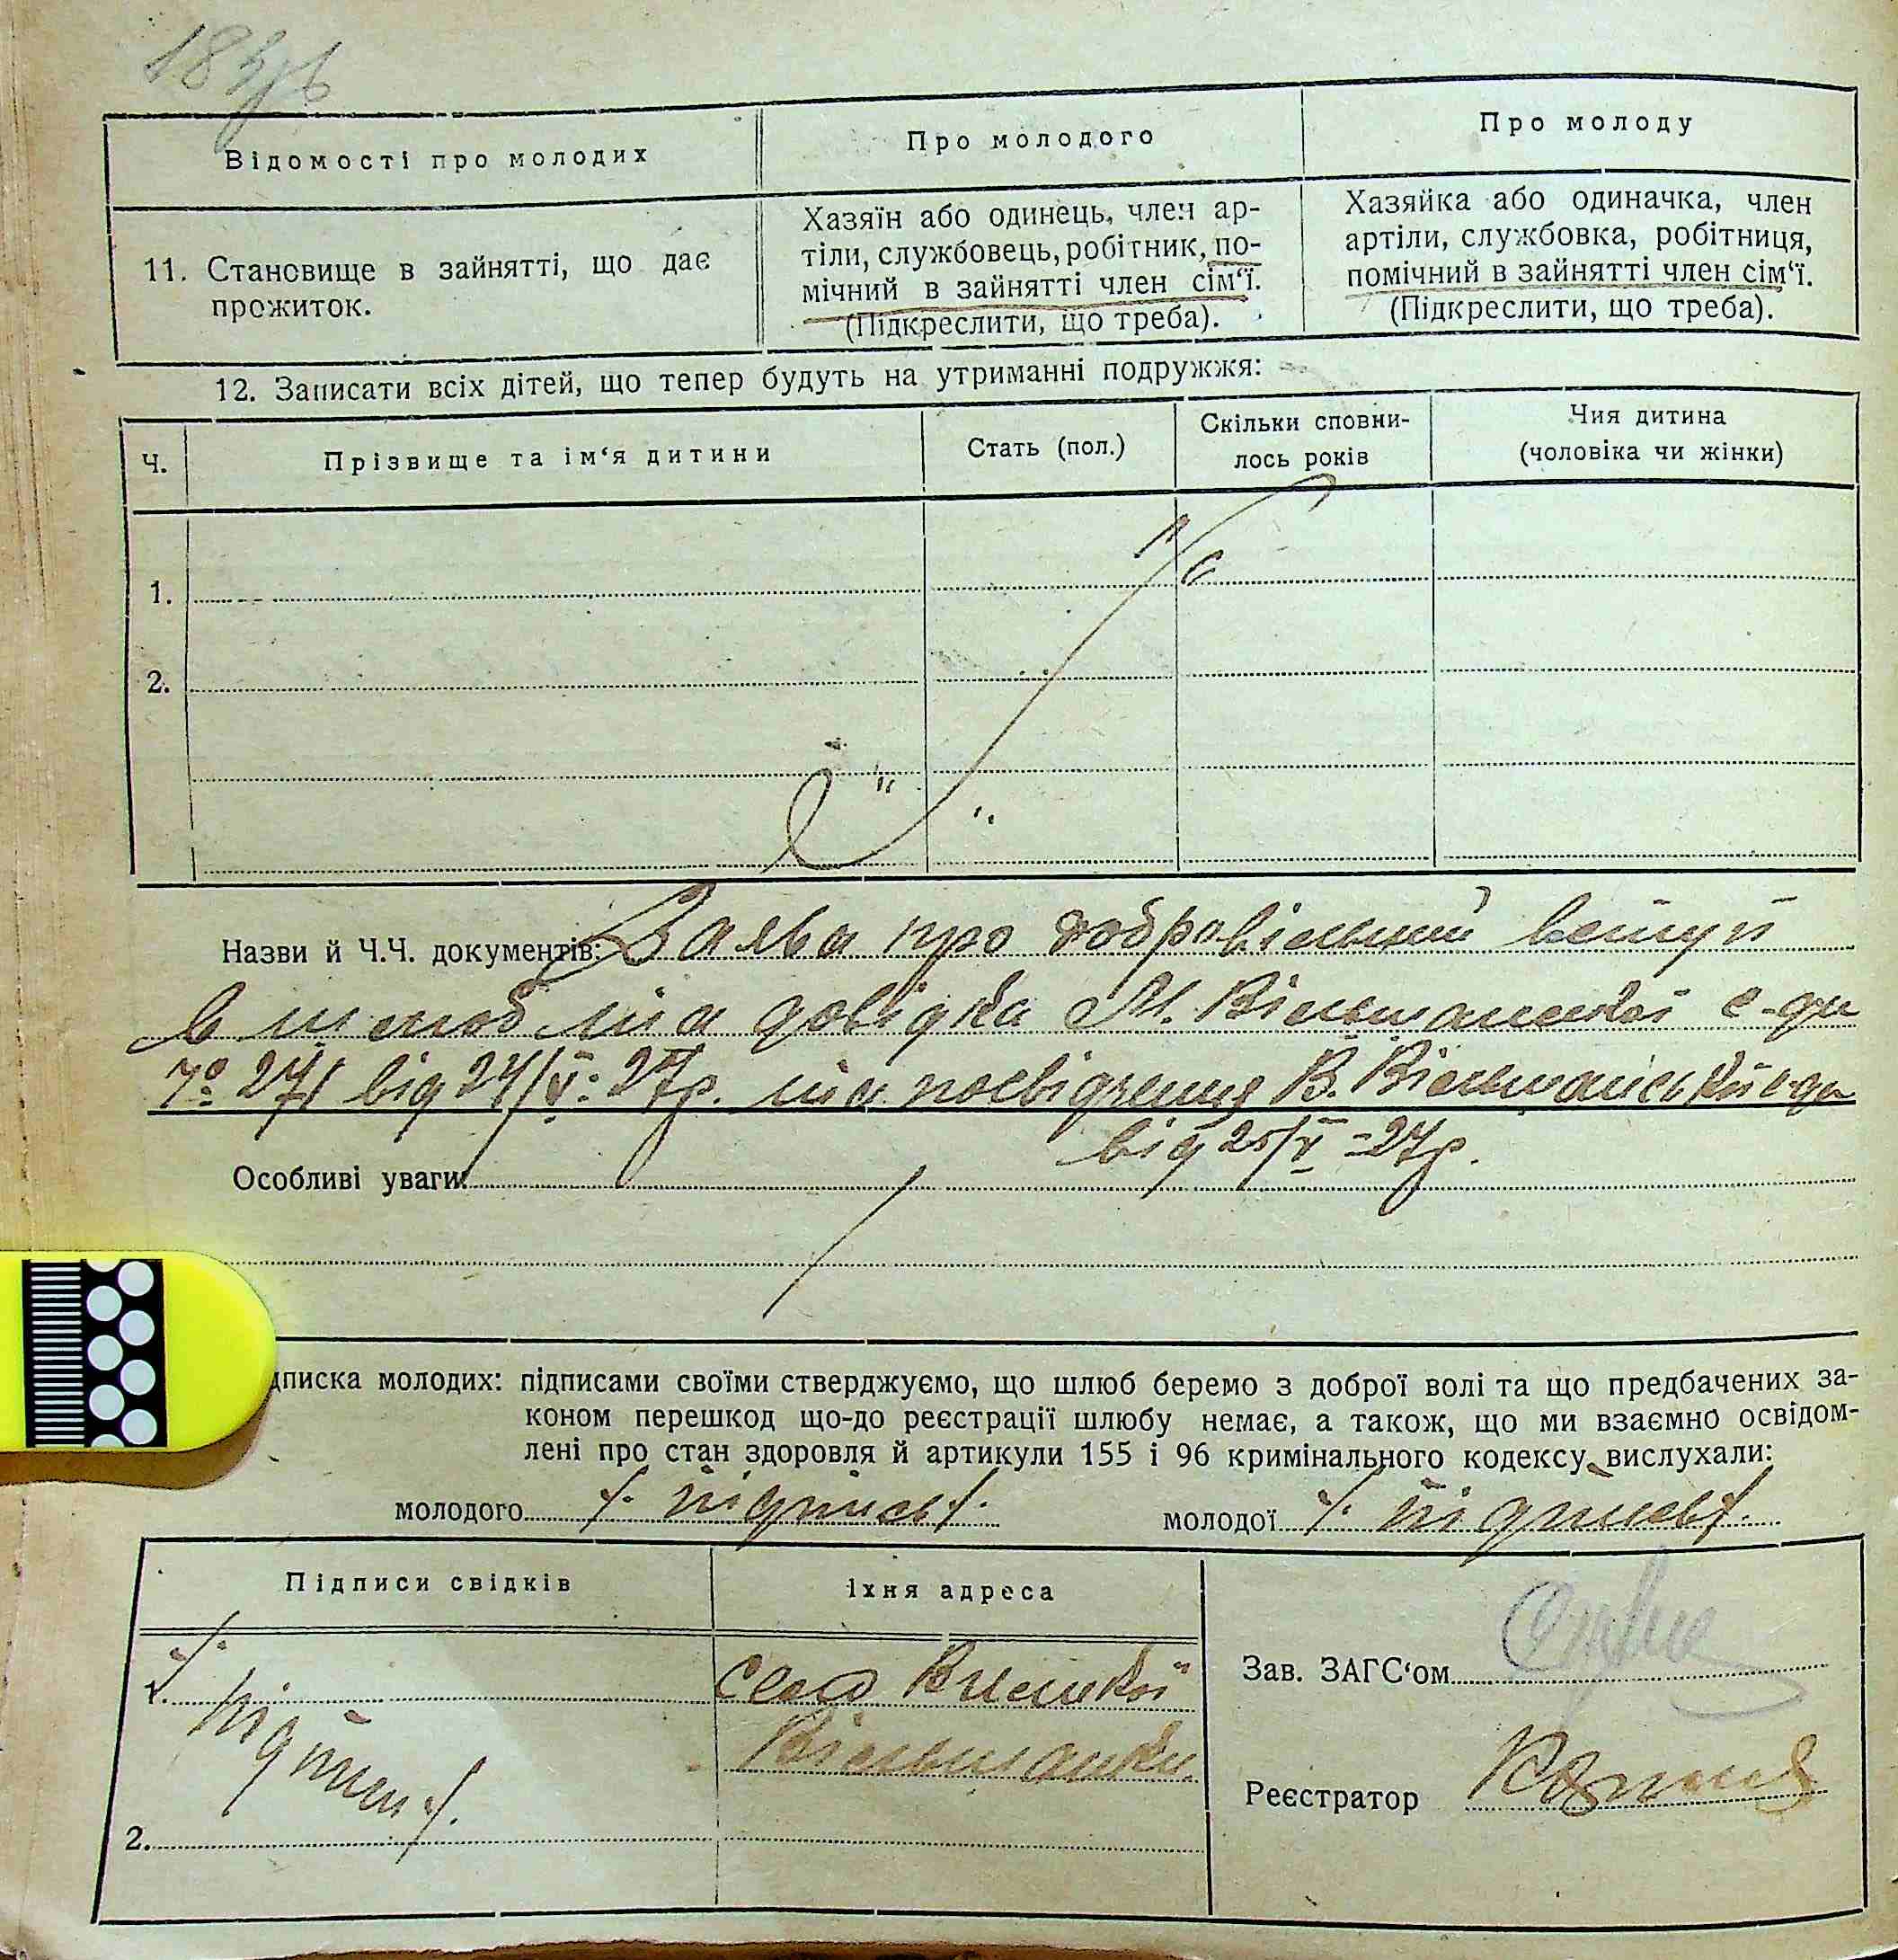 183зв
Відомості про молодих
Про молодого
Про молоду
11. Становище в зайнятті, що дає
прожиток.
Хазяїн або одинець, член ар-
тіли, службовець, робітник, по-
мічний в зайнятті член сім‘ї.
(Підкреслити, що треба).
Хазяйка або одиначка, член
артіли, службовка, робітниця,
помічний в зайнятті член сім‘ї.
(Підкреслити, що треба).
12. Записати всіх дітей, що тепер будуть на утриманні подружжя:
Ч.
Прізвище та ім‘я дитини
Стать (пол.)
Скільки сповни-
лось років
Чия дитина
(чоловіка чи жінки)
1.
2.
Назви й Ч.Ч. документів: Заява про добровільний вступ
в шлюб та довідка М. Вільшанської с-ди
№ 271 від 24/V-27р. та посвідчення В. Вільшанської с-ди
від 25/V-27р.
Особливі уваги:
дписка молодих: підписами своїми стверджуємо, що шлюб беремо з доброї волі та що предбачених за-
коном перешкод що-до реєстрації шлюбу немає, а також, що ми взаємно освідом-
лені про стан здоровля й артикули 155 і 96 кримінального кодексу вислухали:
молодого /. підпись /.
молодої /. підпись /.
Підписи свідків
Їхня адреса
1. /. підписи /.
село
Вільшанки
2.
Зав. ЗАГС‘ом
Реєстратор